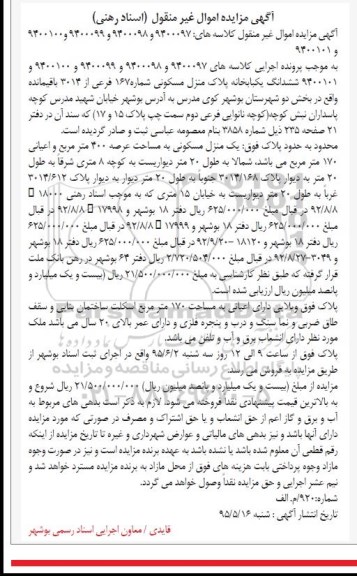 آگهی مزایده اموال غیر منقول (اسناد رهنی)
آگهی مزایده اموال غیر منقول کلاسه های: ۹۴۰۰۰۹۷ و ۹۴۰۰۰۹۸ و ۹۴۰۰۰۹۹ و۹۴۰۰۱۰۰
و ۹۴۰۰۱۰۱
به موجب پرونده اجرایی کلاسه های ۹۴۰۰۰۹۷ و ۹۴۰۰۰۹۸ و ۹۴۰۰۰۹۹ و ۹۴۰۰۱۰۰ و
۹۴۰۰۱۰۱ ششدانگ یکبابخانه پلاک منزل مسکونی شماره۱۶۷ فرعی از ۳۰۱۴ باقیمانده
واقع در بخش دو شهرستان بوشهر کوی مدرس به آدرس بوشهر خیابان شهید مدرس کوچه
پاسداران نبش کوچه(کوچه نانوایی فرعی دوم سمت چپ پلاک ۱۵ و ۱۷) که سند آن در دفتر
۲۱ صفحه ۲۳۵ ذیل شماره ۳۸۵۸ بنام معصومه عباسی ثبت و صادر گردیده است.
محدود به حدود پلاک فوق: یک منزل مسکونی به مساحت عرصه ۴۰۰ متر مربع و اعیانی
۱۷۰ متر مربع می باشد، شمالا به طول ۲۰ متر دیواریست به کوچه ۸ متری شرقاً به طول
۲۰ متر به دیوار پلاک ۳۰۱۴/۱۶۸ جنوبا به طول ۲۰ متر دیوار به دیوار پلاک ۳۰۱۴/۶۱۲
غرباً به طول ۲۰ متر دیواریست به خیابان ۱۵ متری که به موجب اسناد رهنی ۱۸۰۰۰
۹۲/۸/۸ در قبال مبلغ ۶۲۵/۰۰۰/۰۰۰ ریال دفتر ۱۸ بوشهر و ۱۷۹۹۸ ۹۲/۸/۸ در قبال
مبلغ ۶۲۵/۰۰۰/۰۰۰ ریال دفتر ۱۸ بوشهر و ۱۷۹۹۹ ۹۲/۸/۸ در قبال مبلغ ۶۲۵/۰۰۰/۰۰۰
ریال دفتر ۱۸ بوشهر و ۱۸۱۲۰ –۹۲/۹/۲۰ در قبال مبلغ ۶۲۵/۰۰۰/۰۰۰ ریال دفتر ۱۸ بوشهر
و ۳۰۴۹-۹۲/۸/۲۷ در قبال مبلغ ۲/۷۲۰/۵۰۴/۰۰۰ ریال دفتر ۶۴ بوشهر در رهن بانک ملت
قرار گرفته که طبق نظر کارشناسی به مبلغ ۲۱/۵۰۰/۰۰۰/۰۰۰ ریال (بیست و یک میلیارد و
پانصد میلیون ریال ارزیابی شده است.
پلاک فوق ویلایی دارای اعیانی به مساحت ۱۷۰ متر مربع اسکلت ساختمان بنایی و سقف
طاق ضربی و نما سنگ و درب و پنجره فلزی و دارای عمر بالای ۲۰ سال می باشد ملک
مورد نظر دارای انشعاب برق و آب و تلفن می باشد.
پلاک فوق از ساعت ۹ الی ۱۲ روز سه شنبه ۹۵/۶/۲ واقع در اجرای ثبت اسناد بوشهر از
طریق مزایده به فروش می رسد.
مزایده از مبلغ (بیست و یک میلیارد و پانصد میلیون ریال) ۲۱/۵۰۰/۰۰۰/۰۰۰ ریال شروع و
به بالاترین قیمت پیشنهادی نقداً فروخته می شود. لازم به ذکر است بدهی های مربوط به
آب و برق و گاز اعم از حق انشعاب و یا حق اشتراک و مصرف در صورتی که مورد مزایده
دارای آنها باشد و نیز بدهی های مالیاتی و عوارض شهرداری و غیره تا تاریخ مزایده از اینکه
رقم قطعی آن معلوم شده باشد یا نشده باشد به عهده برنده مزایده است و نیز در صورت وجوه
مازاد وجوه پرداختی بابت هزینه های فوق از محل مازاد به برنده مزایده مسترد خواهد شد و
نیم عشر اجرایی و حق مزایده نقدا وصول خواهد می گردد.
شماره:۹۲۰/م الف
تاریخ انتشار آگهی : شنبه ۹۵/۵/۱۶
قایدی / معاون اجرایی اسناد رسمی بوشهر